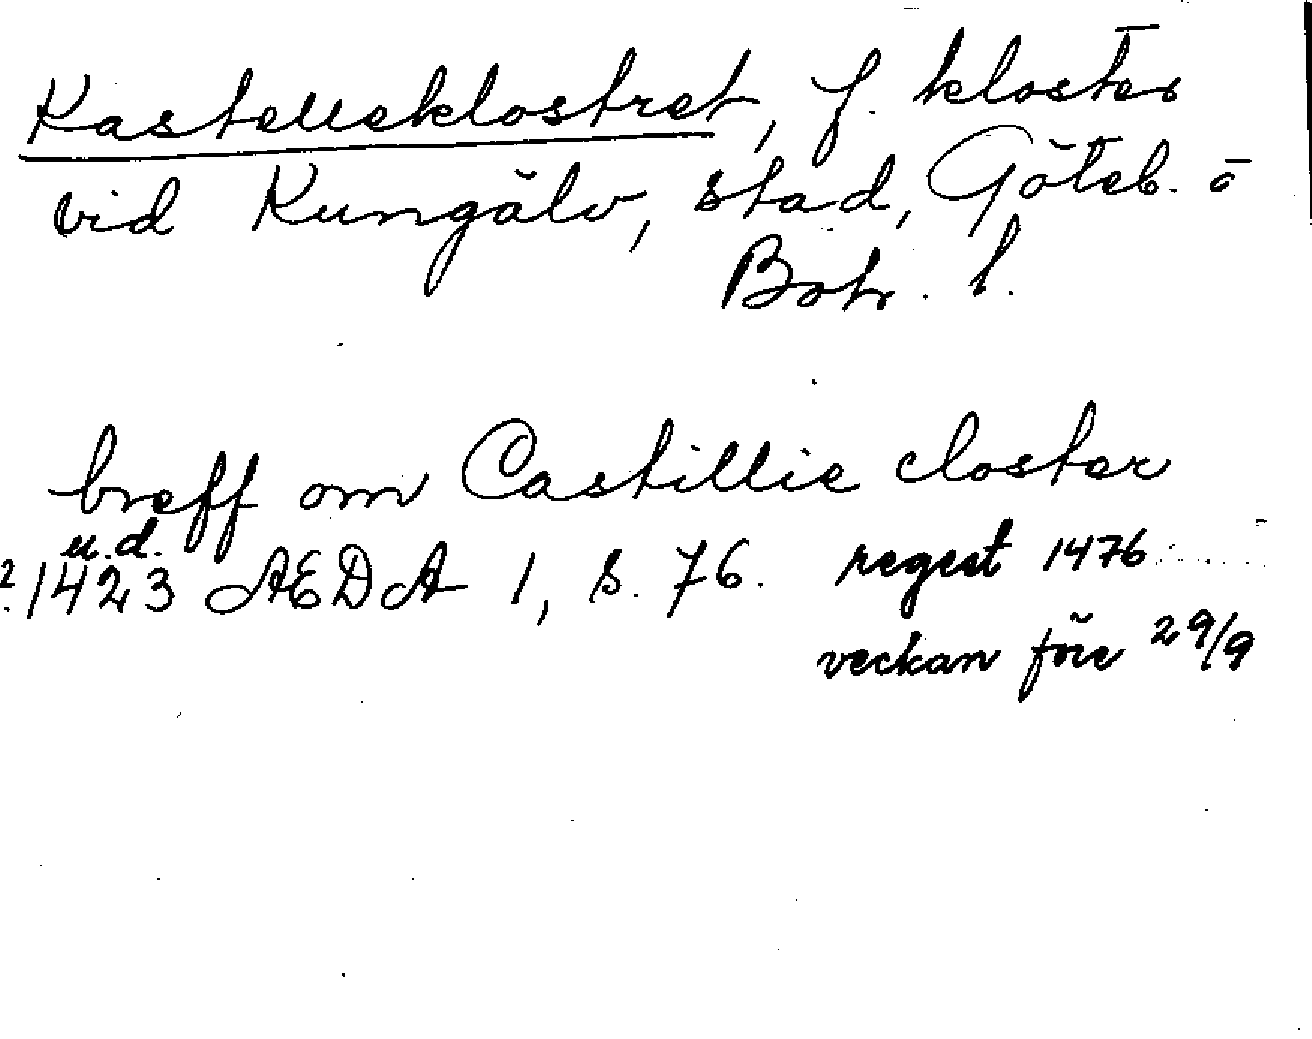 Kastelleklostret, f. kloster
vid Kungälv, stad, Göteb. o
Boh. l.
breff om Castillie closter
u.d.
1423 AEDA 1, s. 76. regest 1476
veckan före 29/9